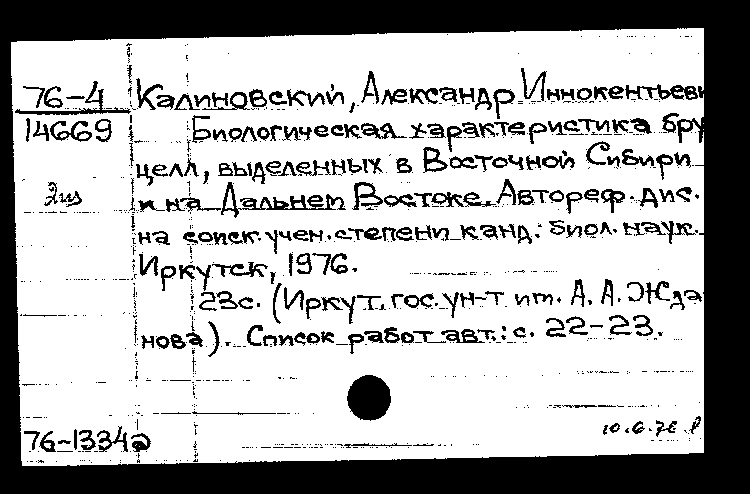 76-4 Калиновский, Александр Иннокентьеви
14669 Биологическая характеристика бру
целл, выделенных в Восточной Сибири
и на Дальнем Востоке. Автореф. дис.
на соиск. учен. степени канд. биол. наук.
Иркутск, 1976.
23с. (Иркут. гос. ун-т им. А. А. Жда
нова). Список работ авт.: с. 22-23.
76-1334а
10.6.76